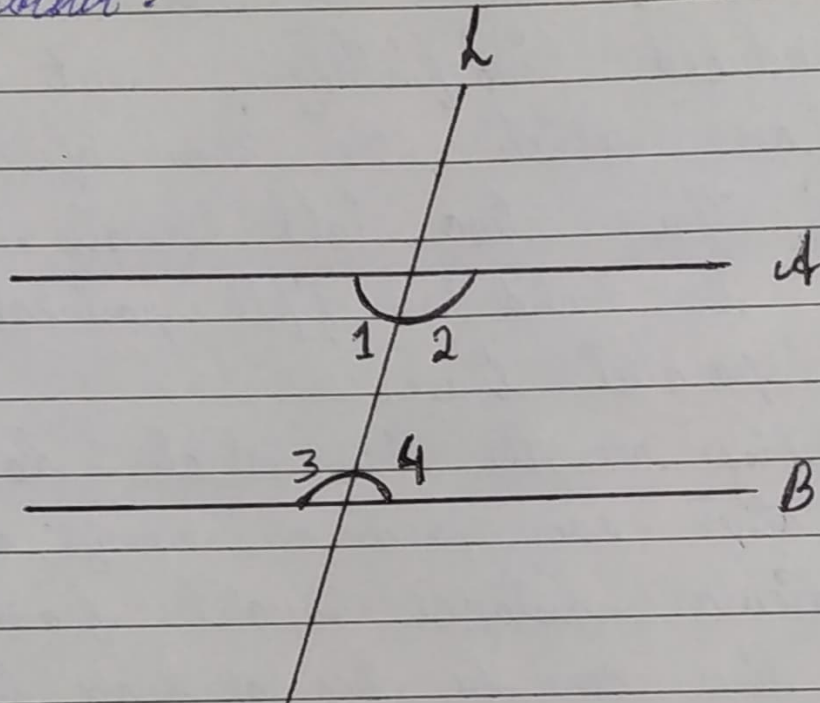 L
A
1 2
3 4
B